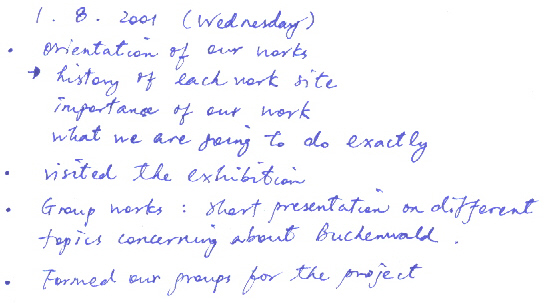 1. 8. 2001 (Wednesday)
• orientation of our works
→ history of each work site
importance of our work
what we are going to do exactly
• visited the exhibition
• Group works : short presentation on different
topics concerning about Buchenwald.
• Formed our groups for the project